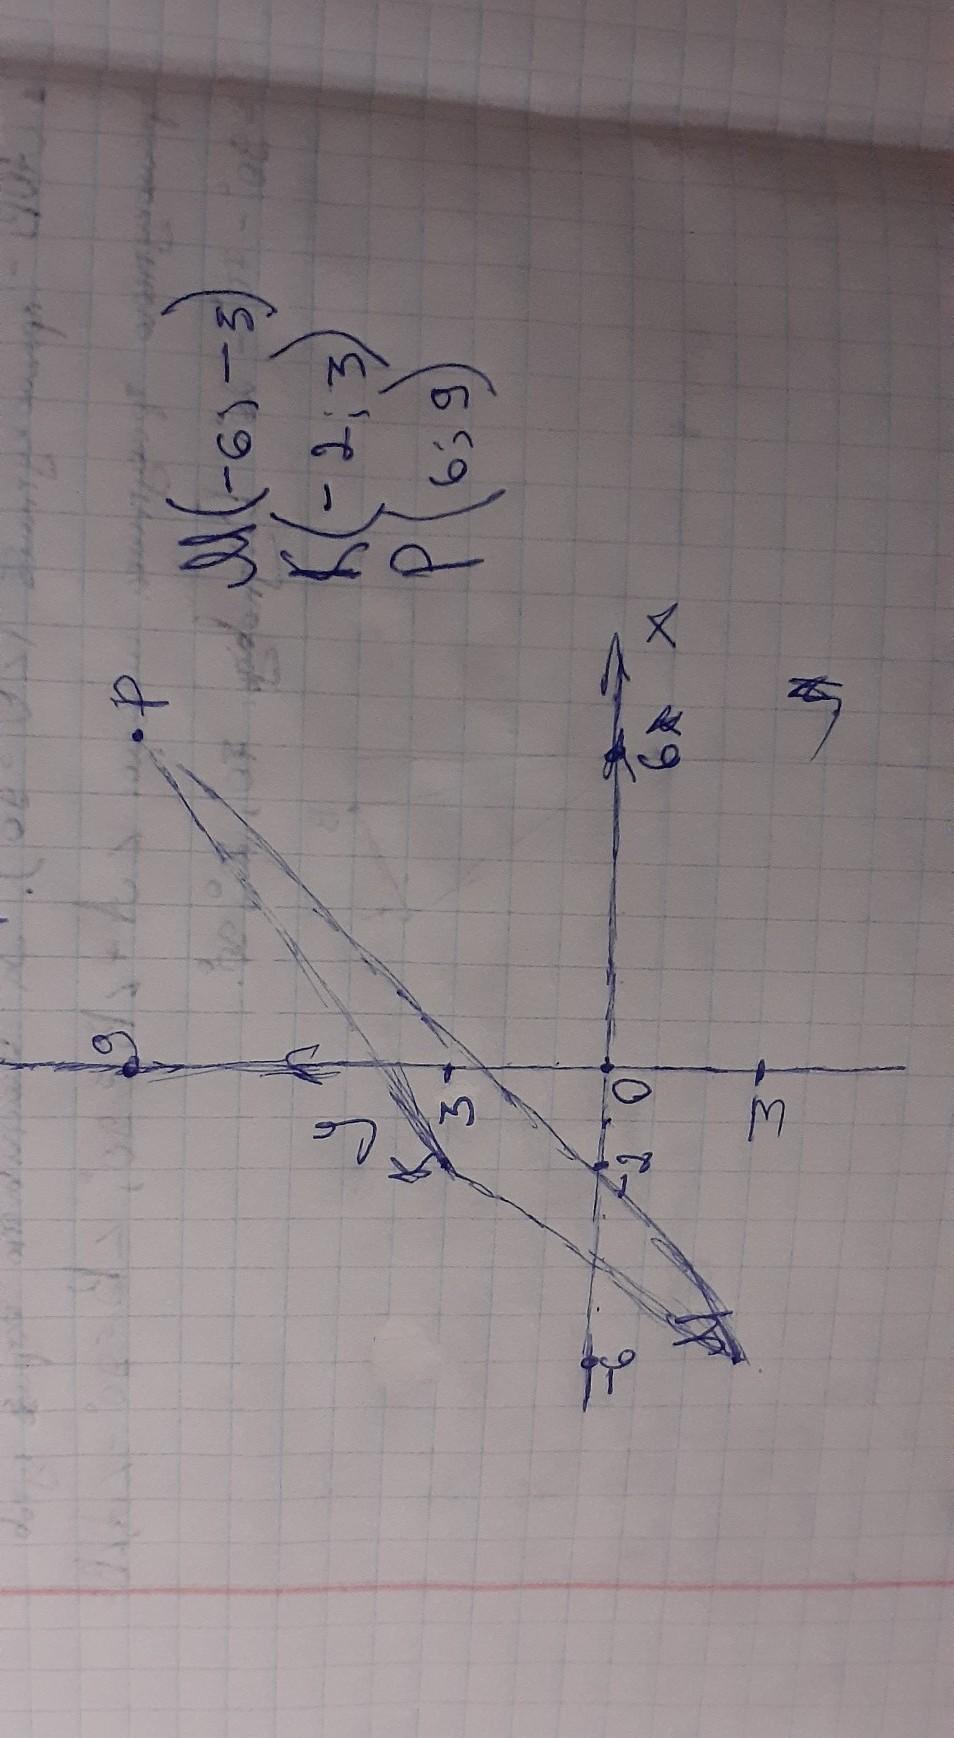 P
9
M(-6; -3)
K(-2; 3)
P(6; 9)
y
K
3
-6
-2
0
6
x
M
3